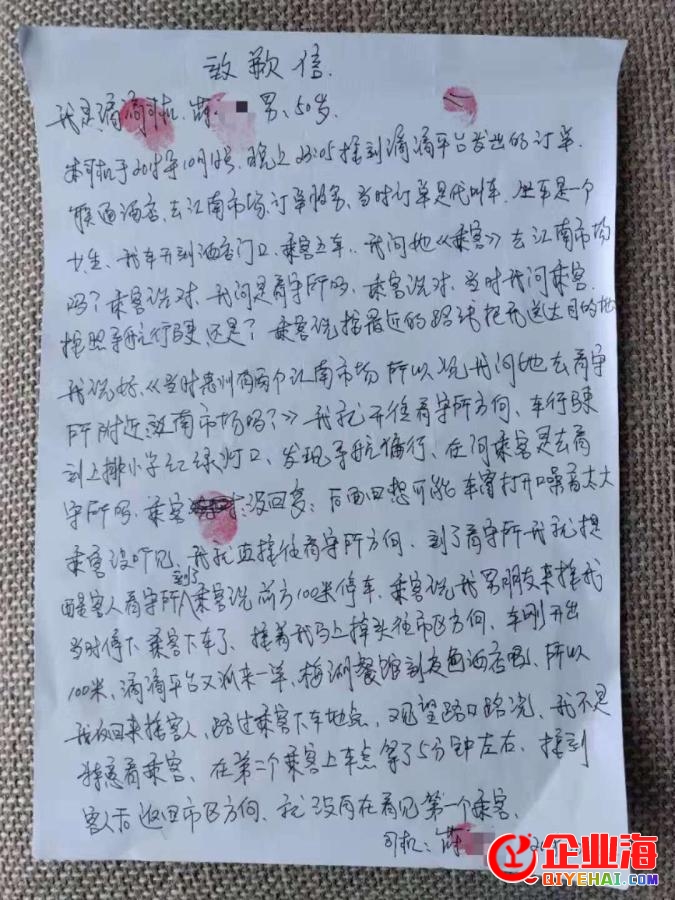 致歉信.
我是滴滴司机. 薛 男、50岁、
本司机于 年10月 号、晚上 接到滴滴平台发出的订单.
酒店、去江南市场、订单服务、当时订单是代叫车、坐车是一个
女生、我车开到酒店门口、乘客上车、我问她《乘客》去江南市场
吗? 乘客说对、我问是看守所吗、乘客说对、当时我问乘客、
按照导航行驶、还是? 乘客说按最近的路线把我送上目的地
我说好、《当时惠州有两个江南市场 所以 我问她去看守
所附近江南市场吗?》我就开往看守所方向、车行驶
到上排小学红绿灯口、发现导航偏行、在问乘客是去看
守所吗、乘客 没回复: 后面回想可能车窗打开噪音太大
乘客没听见、我就直接往看守所方向、到了看守所我就提
醒客人看守所到了 乘客说前方100米停车、乘客说我男朋友来接我
当时停下 乘客下车了、接着我马上掉头往市区方向、车刚开出
100米、滴滴平台又派来一单、梅湖餐馆到 酒店 、所以
我返回来接客人、路过乘客下车地点、观望路口路况、我不是
特意看乘客、在第二个乘客上车点等了5分钟左右、接到
客人后返回市区方向、就没再在看见第一个乘客、
司机: 薛
企业海
QIYEHAI.COM